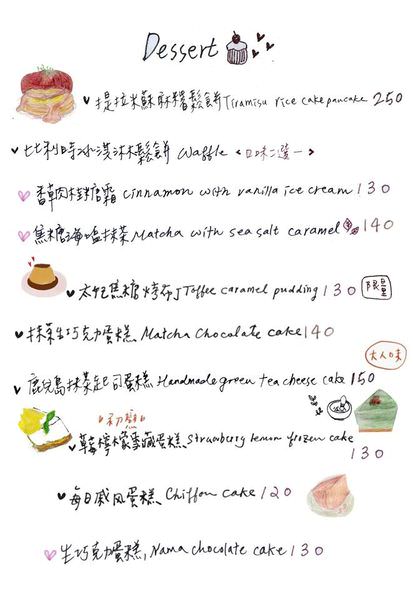 Dessert
提拉米蘇麻糬鬆餅 Tiramisu rice cake pancake 250
比利時冰淇淋鬆餅 Waffle <口味二選一>
香草肉桂糖霜 cinnamon with vanilla ice cream 130
焦糖海塩抹茶 Matcha with sea salt caramel 140
太妃焦糖烤布丁 Toffee caramel pudding 130 限量
抹茶生巧克力蛋糕 Matcha Chocolate cake 140
大人味
鹿兒島抹茶起司蛋糕 Handmade green tea cheese cake 150
"初戀"
草莓檸檬雪藏蛋糕 Strawberry lemon frozen cake
130
每日戚风蛋糕 Chiffon cake 120
生巧克力蛋糕 Nama chocolate cake 130